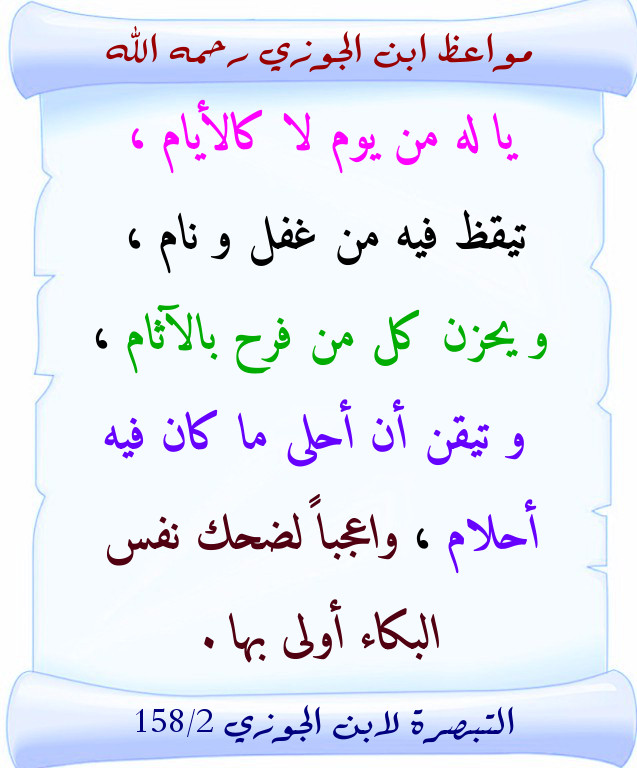 مواعظ ابن الجوزي رحمه الله
يا له من يوم لا كالأيام ،
تيقظ فيه من غفل و نام ،
و يحزن كل من فرح بالآثام ،
و تيقن أن أحلى ما كان فيه
أحلام ، واعجباً لضحك نفس
البكاء أولى بها .
التبصرة لابن الجوزي 158/2